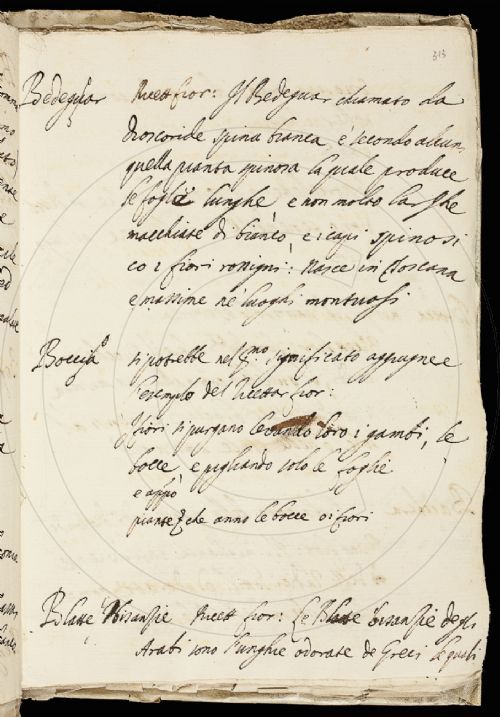 313
Bedeguar Ricett fior: Il Bedeguar chiamato da
Dioscoride spina bianca e secondo alcun,
quella pianta spinosa la quale produce
le foglie lunghe e non molto larghe
macchiate di bianco, e i capi spinosi
co i fiori rossigni: Nasce in Toscana
e massime ne luoghi montuosi
Boccia si potrebbe nel p.mo significato aggiugnere
l'esempio del Ricettar fior:
I fiori si purgano levando loro i gambi, le
bocce e pigliando solo le foglie
e appo
piante che anno le bocce o i fiori
Blatte bisanzie Ricett fior: Le Blatte bisanzie degli
Arabi sono l'unghie odorate de Greci le quali